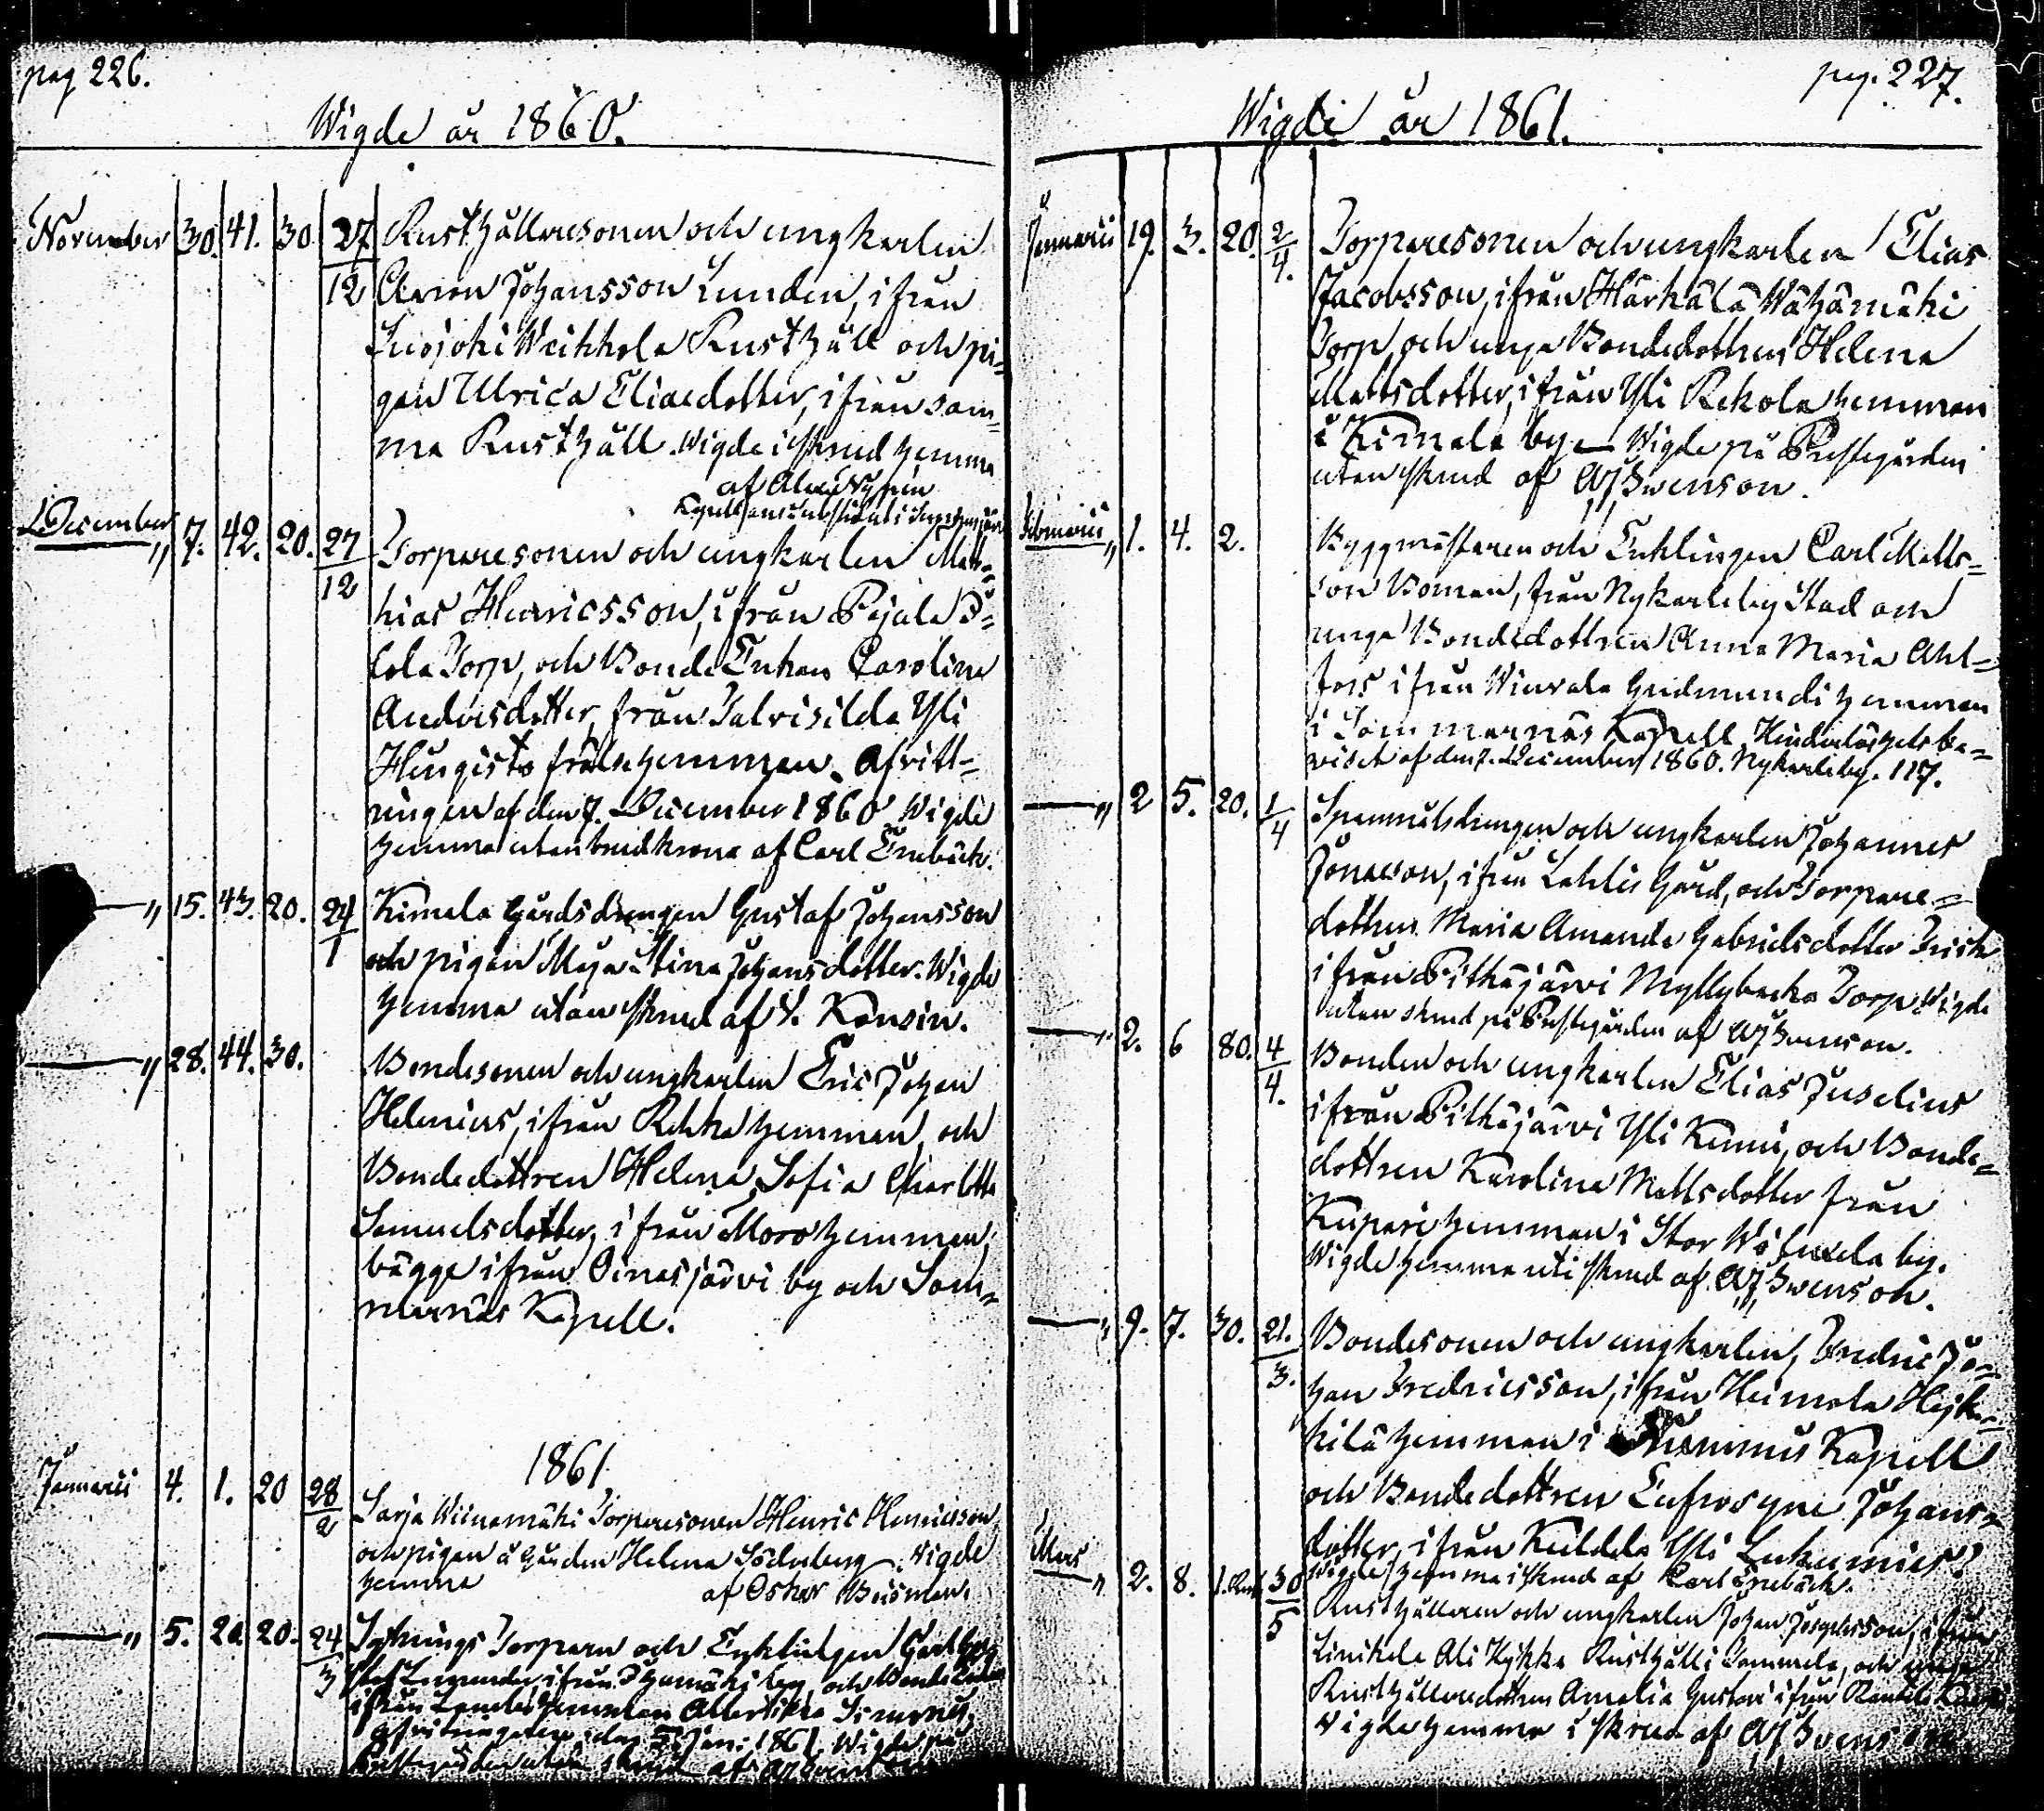 pag 226.
Wigde år 1860.
November 30. 41. 30. 27/12 Rusthållaresonen och ungkarlen
Johansson Lunden, ifrån
Suojoki Weikkola Rusthåll och pi=
gan Ulrica Eliaedotter, ifrån sam=
ma Rusthåll. Wigde i skrud hemma
af
December " 7. 42. 20. 27/12 Torparesonen och ungkarlen Matt=
hias Henricsson, ifrån
Torp, och Bonde Enkan Carolina
Andersdotter, från Talvisilda Yli
Hengisto frälsehemman. Afvitt=
ringen af den 7. December 1860. Wigde
hemma utan brudkrona af Carl Enebäck.
— " 15. 43. 20. 24/1 Kimala Gårdsdrengen Gustaf Johansson
och pigan Maja Stina Johansdotter. Wigde
hemma utan skrud af
— " 28. 44. 30. Bondesonen och ungkarlen Eric Johan
Helenius, ifrån Rekka hemman, och
Bondedottren Helena Sofia Charlotta
Samuelsdotter, ifrån Moro hemman,
bägge ifrån Oinasjärvi by och Som=
marnäs Kapell.
1861
Januarii 4. 1. 20 28/2 Sarja Wiinamäki Torparesonen Henric Henricsson,
och pigan å Gården Helena Söderberg. Wigde
hemma af Oskar
— " 5. 2. 20. 24/3 Torparen och Enklingen
by, och Bonde
ifrån hemman
den 5 Jan: 1861. Wigde på
skrud af
pag. 227.
Wigde år 1861.
Januarii 19. 3. 20. 2/4. Torparesonen och ungkarlen Elias
Jacobsson, ifrån Härkälä Wähämäki
Torp, och unga Bondedottren Helena
Mattsdotter, ifrån Yli Rekola hemman
i Kimala by. — Wigde på Prestgården
utan skrud af AJ Swenson.
Februarii " 1. 4. 2. Byggmästaren och Enklingen Carl Matts=
son Boman, från Nykarleby Stad och
unga Bondedottren Anna Maria Ahl=
fors ifrån Wiuvala Gudmundi hemman
i Sommarnäs Kapell. Hinderlöshets be=
viset af den 7. December 1860. Nykarleby. 117.
— " 2 5. 20. 1/4 Spannmålsdrengen och ungkarlen Johannes
Jonasson, ifrån Lahlis Gård, och Torpare=
dottren Maria Amanda Gabrielsdotter Frisk
ifrån Pitkäjärvi Myllybacka Torp. Wigde
utan skrud på Prestgården af AJ Swenson.
— " 2. 6 80. 4/4. Bonden och ungkarlen Elias Juselius
ifrån Pitkäjärvi Yli Knuu, och Bonde=
dottren Karolina Mattsdotter från
Kupari hemman i Stor Wäfwela by.
Wigde hemma uti skrud af AJ Swenson.
— " 9. 7. 30. 21./3. Bondesonen och ungkarlen, Fredric Jo=
han Fredricsson, ifrån Heimola Hejk=
kilä hemman i Nummis Kapell
och Bondedottren Eufrosyne Johans=
dotter, ifrån Kuldala Yli
Wigde hemma i skrud af Carl Enebäck.
Mars " 2. 8. 30/5 Rusthållaren och ungkarlen Johan Josephsson, ifrån
Linikala Ali Hykkä Rusthåll i Sommela, och unga
Rusthållaredottren Amalia Gustava ifrån
Wigde hemma i skrud af AJ Swenson.